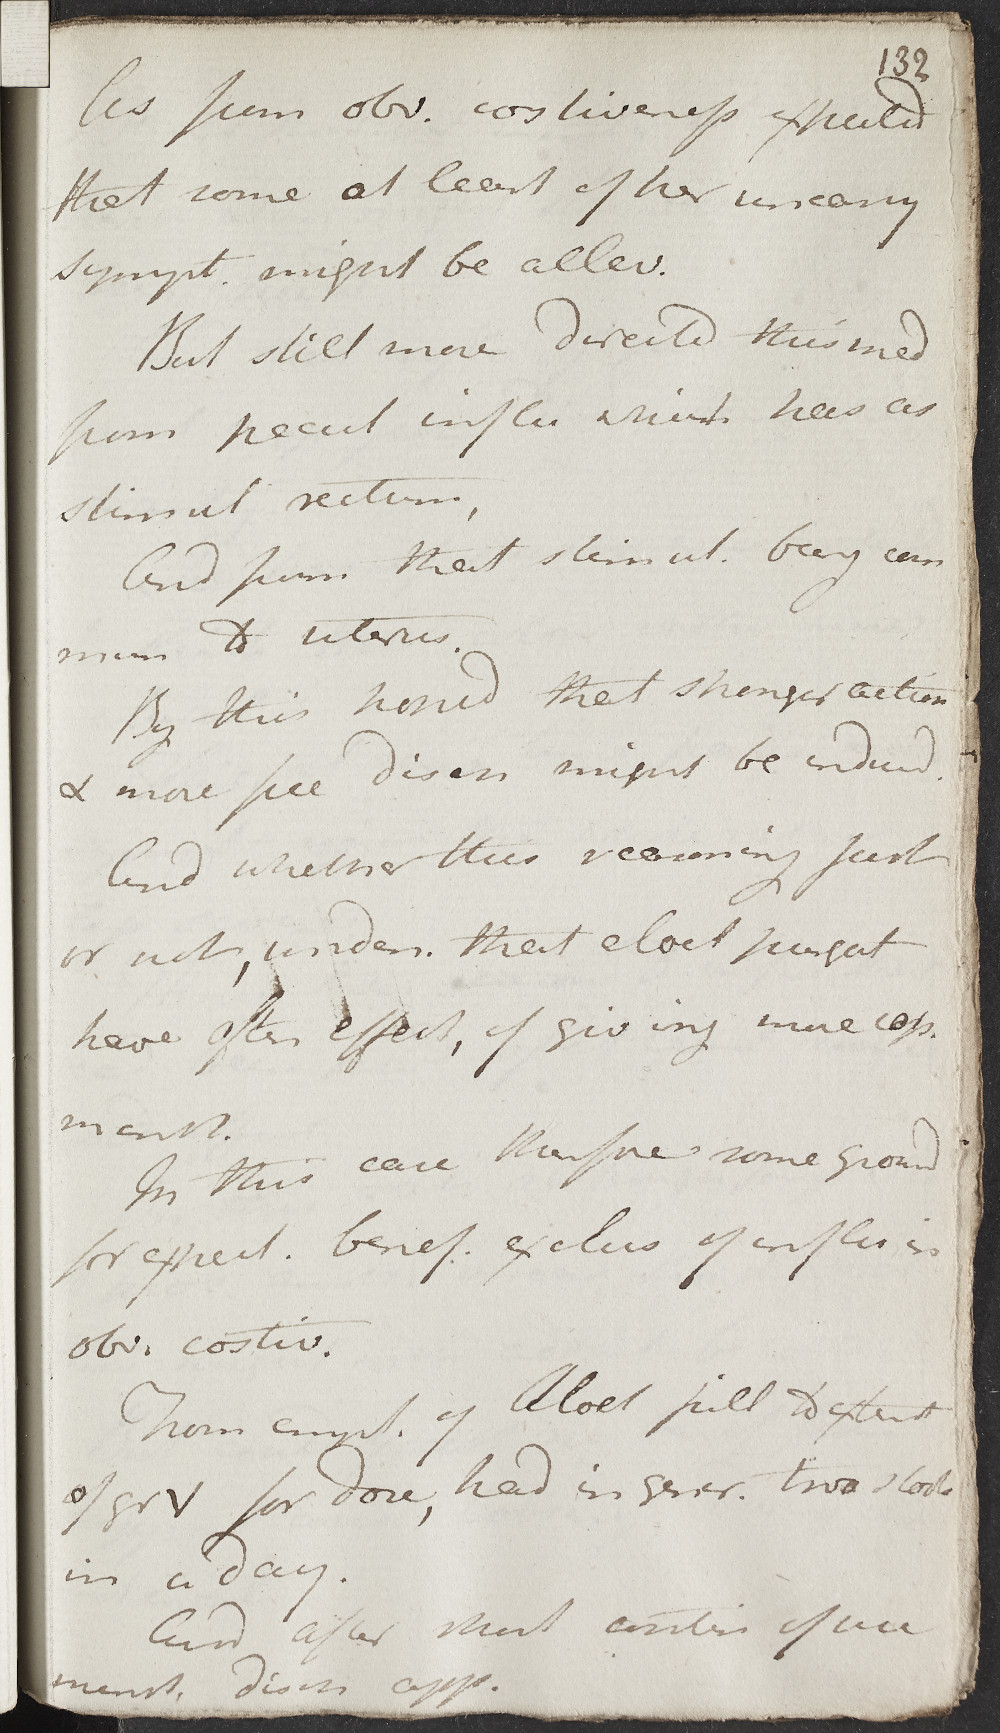 132
As from obv. costiveness expected
that some at least of her uneasy
sympt. might be allev.
But still more directed this med
from pecul influ which has as
stimul rectum,
And from that stimul. being com
mun to uterus.
By this hoped that stronger action
& more free disch might be induced.
And whether this reasoning just
or not, unders. that aloet purgat
have often effect, of giving more cop.
menst.
In this case therefore some ground
for expect. benef. exclus of influ in
obv. costiv.
From empl. of Aloet pill to extent
of gr V for dose, had in gener. two stools
in a day.
And after short contin of use
menst. disch app.